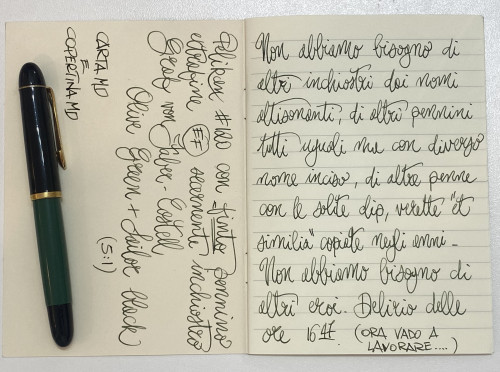 CARTA MD
E
COPERTINA MD
Pelikan #120 con finto pennino
extrafine (EF) scarmente inchiostro
Graf von Faber-Castell
Olive Green + Sailor black
(5:1)
Non abbiamo bisogno di
altri inchiostri dai nomi
altisonanti, di altri pennini
tutti uguali ma con diverso
nome inciso, di altre penne
con le solite clip, verette "et
similia" copiate negli anni -
Non abbiamo bisogno di
altri eroi. Delirio delle
ore 16
(ORA VADO A
LAVORARE....)